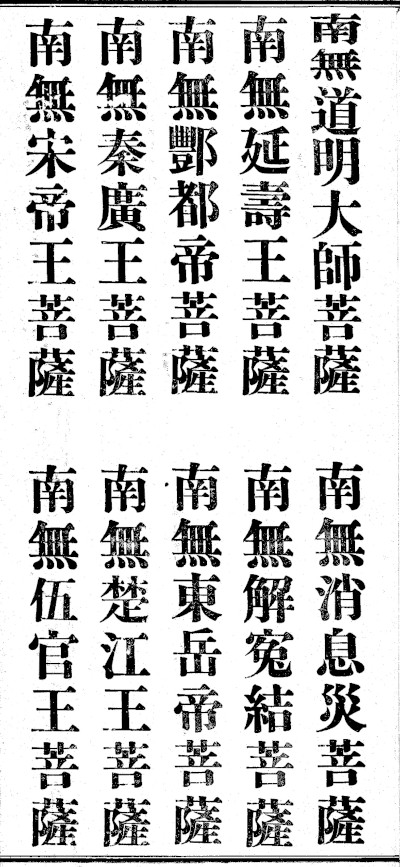 南無道明大師菩薩
南無消息災菩薩
南無延壽王菩薩
南無解寃結菩薩
南無酆都帝菩薩
南無東岳帝菩薩
南無秦廣王菩薩
南無楚江王菩薩
南無宋帝王菩薩
南無伍官王菩薩